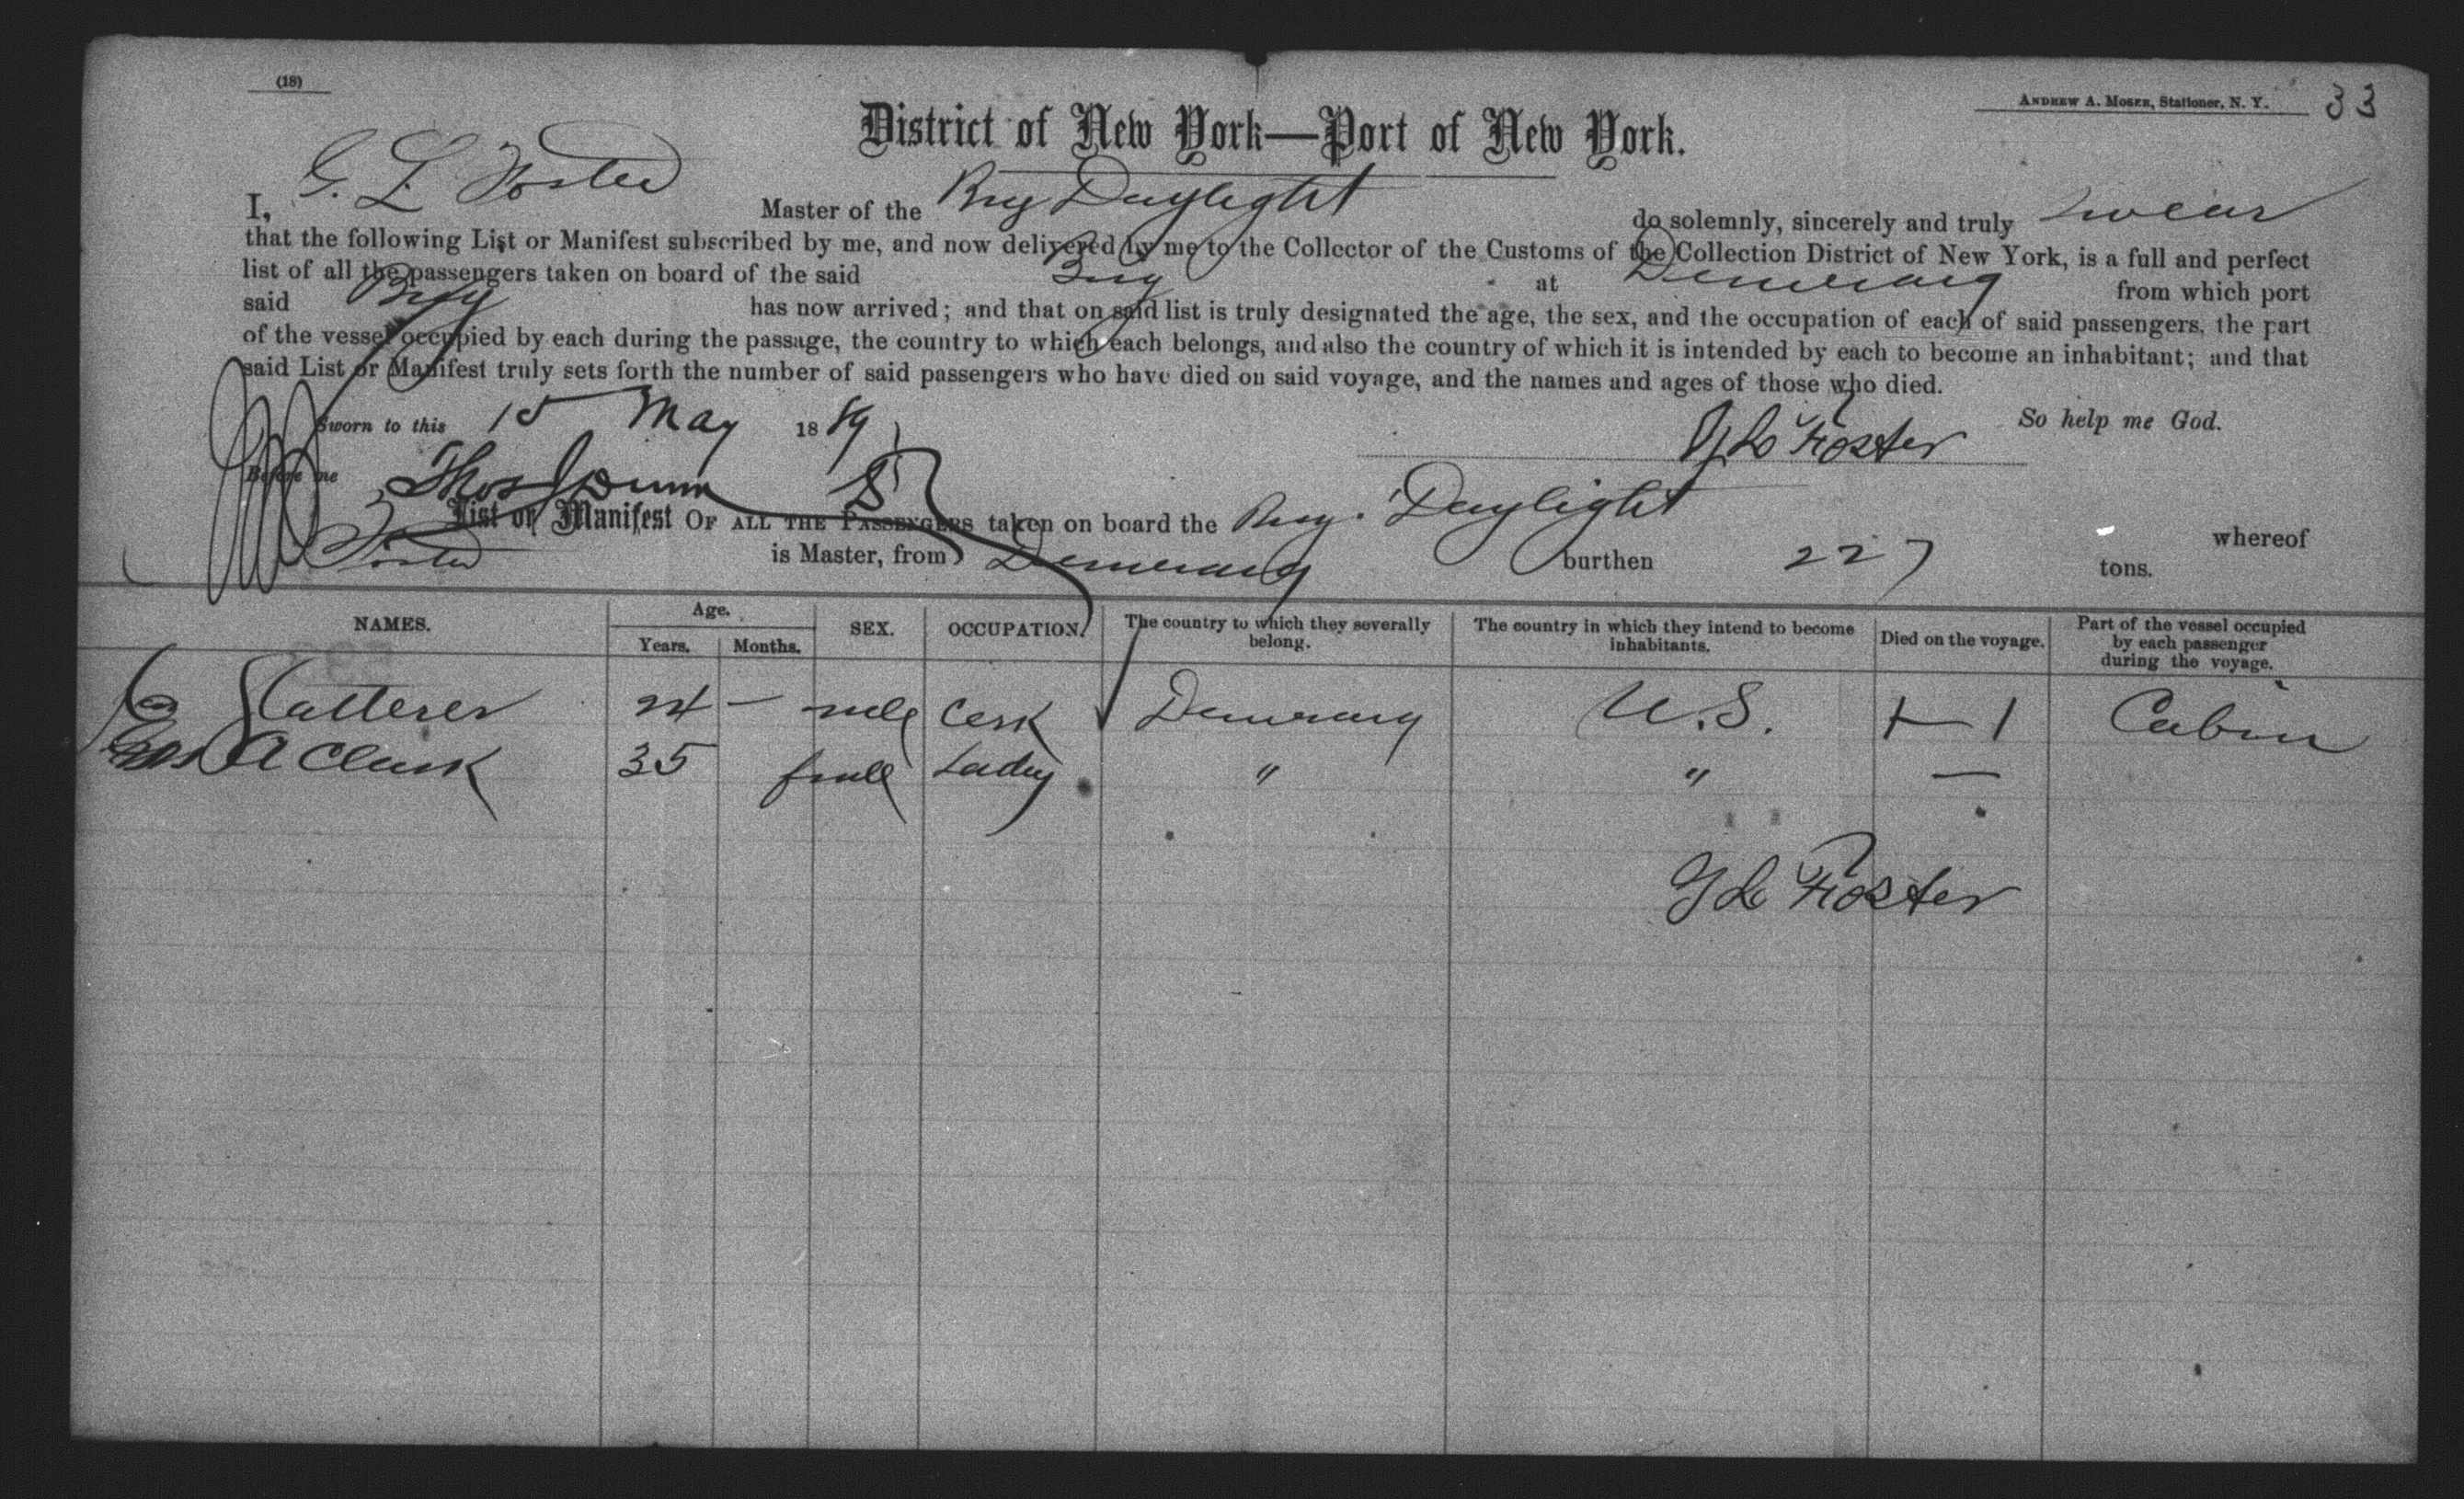 (18)
ANDREW A. MOSER, Stationer, N. Y. 33
District of New York—Port of New York.
I, G. L Foster Master of the Brig Daylight do solemnly, sincerely and truly swear
that the following List or Manifest subscribed by me, and now delivered by me to the Collector of the Customs of the Collection District of New York, is a full and perfect
list of all the passengers taken on board of the said Brig at Demerary from which port
said Brig has now arrived; and that on said list is truly designated the age, the sex, and the occupation of each of said passengers, the part
of the vessel occupied by each during the passage, the country to which each belongs, and also the country of which it is intended by each to become an inhabitant; and that
said List or Manifest truly sets forth the number of said passengers who have died on said voyage, and the names and ages of those who died.
Sworn to this 15 May 1889 So help me God.
G L Foster
Before me Thos Dunn
List or Manifest OF ALL THE PASSENGERS taken on board the Brig. Daylight whereof
Foster is Master, from Demerary burthen 227 tons.
NAMES. Age. Years. Months. SEX. OCCUPATION. The country to which they severally belong. The country in which they intend to become inhabitants. Died on the voyage. Part of the vessel occupied by each passenger during the voyage.
Slatterer 24 — male Cerk Demerary U.S. Cabin
A Clark 35 fmale Lady " " —
G L Foster